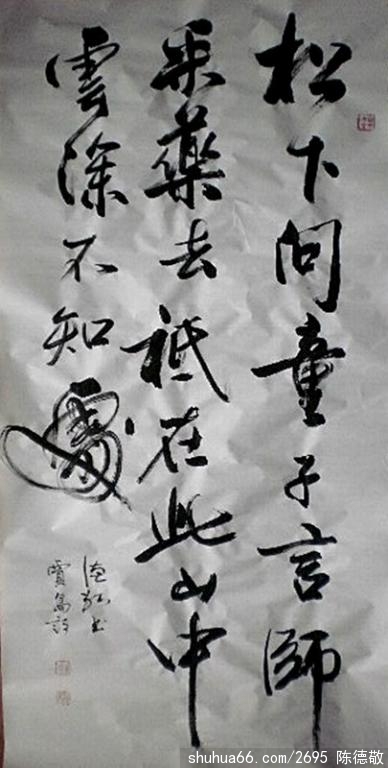 松下問童子言師
采藥去祗在此山中
雲深不知處
德敬书
賈島詩
shuhua66.com/2695 陈德敬